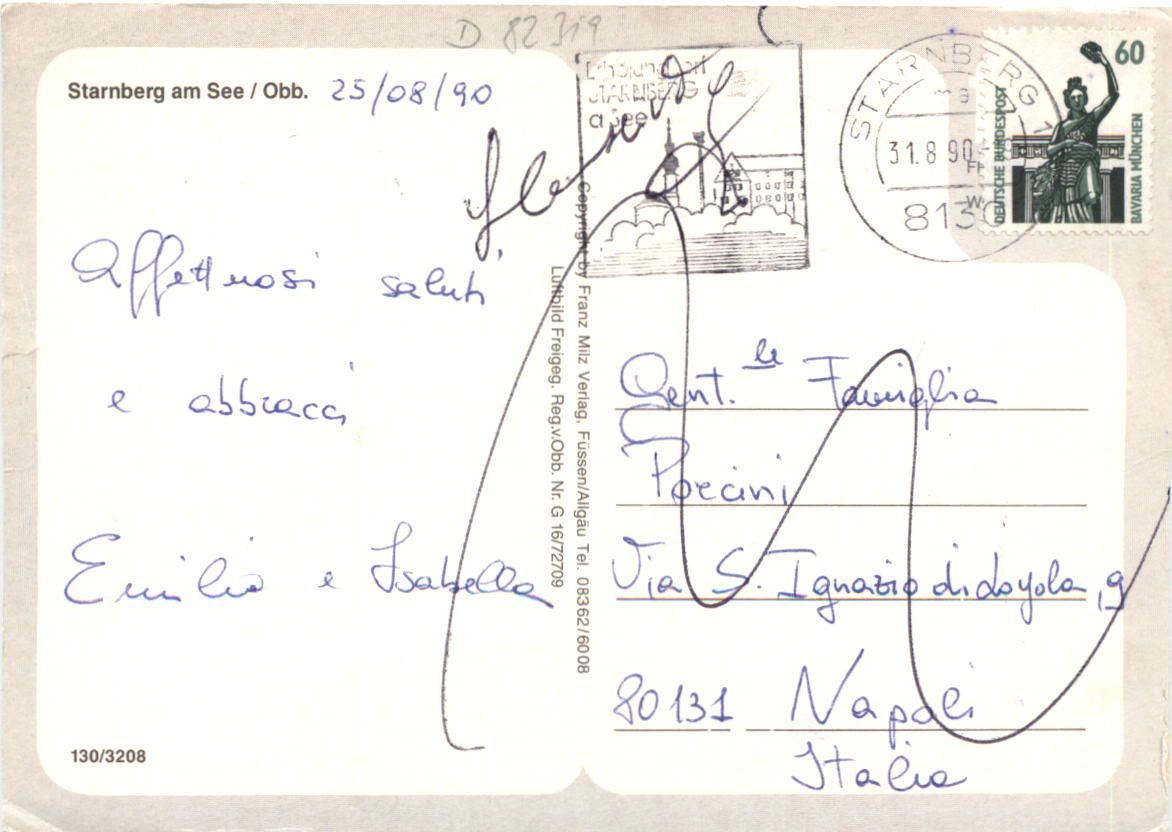 D 82319
Starnberg am See / Obb. 25/08/90
Affettuosi saluti
e abbracci
Emilio e Isabella
130/3208
Copyright by Franz Milz Verlag, Füssen/Allgäu Tel. 08362/6008
Luftbild Freigeg. Reg.v.Obb. Nr. G 16/72709
Erholungsort
STARNBERG
a See
STARNBERG 1
31.8.90
813
60
DEUTSCHE BUNDESPOST
BAVARIA MÜNCHEN
Gent.le Famiglia
Porcini
Via S. Ignazio di Loyola, 9
80131 Napoli
Italia